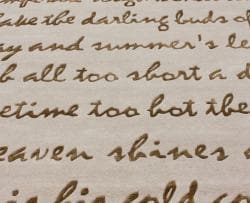 ake the darling buds of
ay and summer's le
h all too short a d
etime too hot the
eaven shines
is his gold co